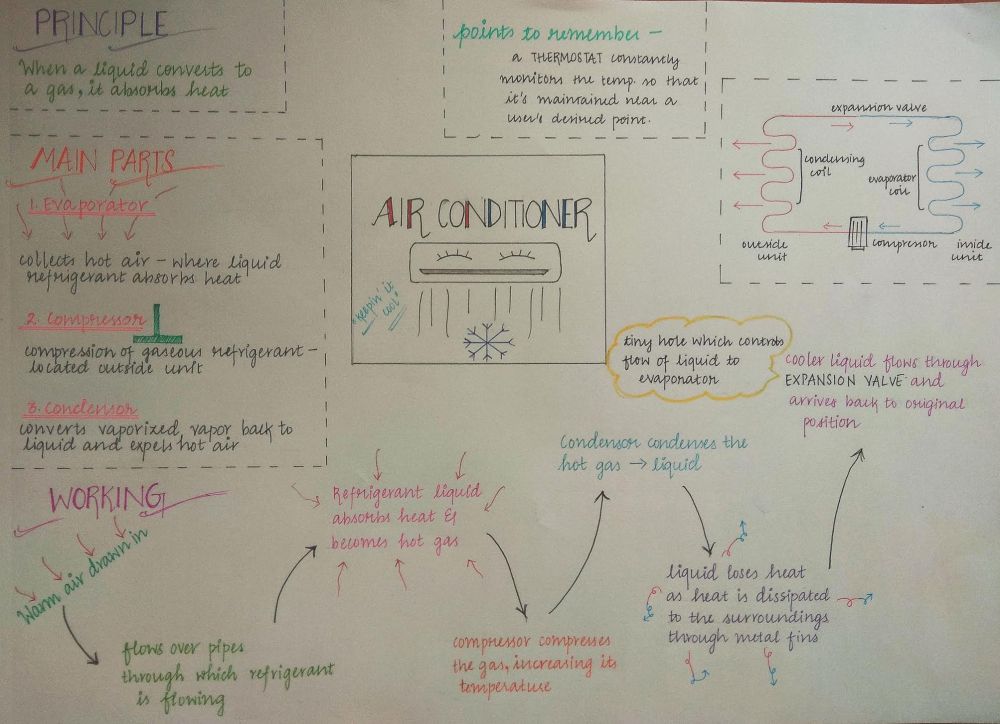 PRINCIPLE
When a liquid converts to
a gas, it absorbs heat
points to remember –
a THERMOSTAT constantly
monitors the temp. so that
it's maintained near a
user's desired point.
MAIN PARTS
1. Evaporator
collects hot air – where liquid
refrigerant absorbs heat
2. Compressor
compression of gaseous refrigerant –
located outside unit
3. Condensor
converts vaporized vapor back to
liquid and expels hot air
AIR CONDITIONER
"keepin' it
cool"
expansion valve
condensing
coil
evaporator
coil
outside
unit
compressor
inside
unit
WORKING
Warm air drawn in
flows over pipes
through which refrigerant
is flowing
Refrigerant liquid
absorbs heat &
becomes hot gas
compressor compresses
the gas, increasing its
temperature
Condensor condenses the
hot gas → liquid
liquid loses heat
as heat is dissipated
to the surroundings
through metal fins
tiny hole which controls
flow of liquid to
evaporator
cooler liquid flows through
EXPANSION VALVE and
arrives back to original
position